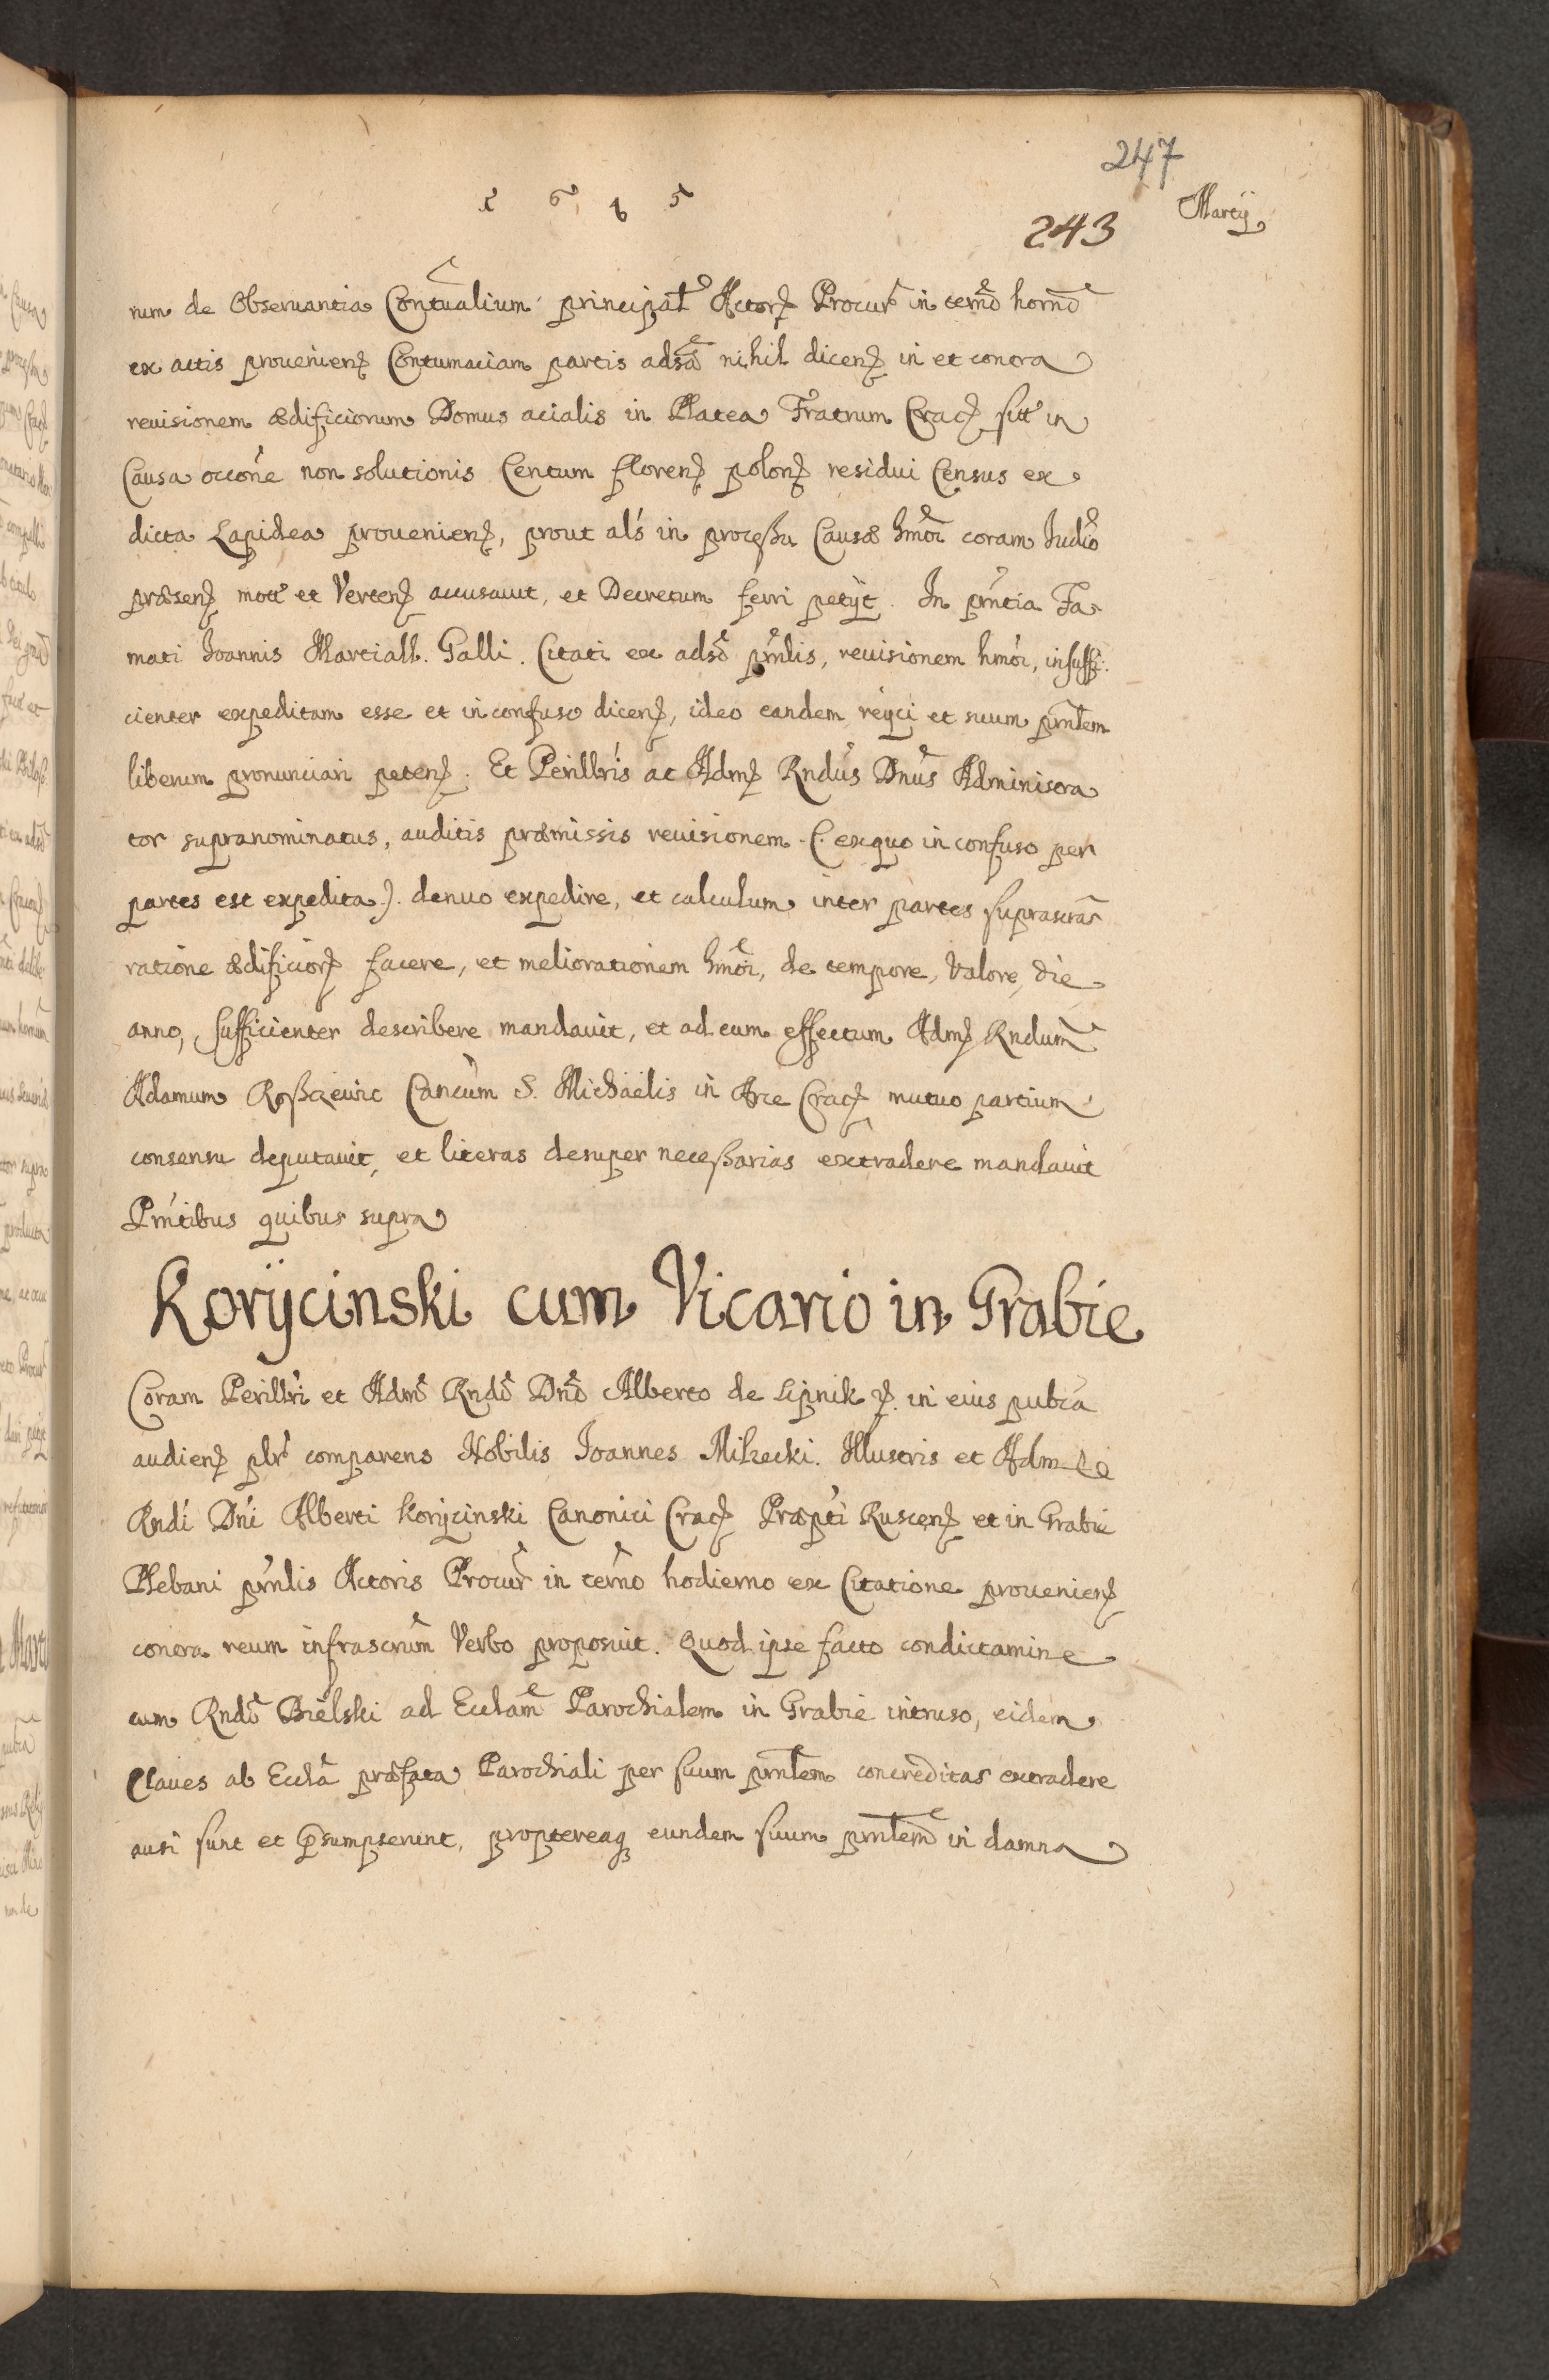 247
1 6 6 5
243 Martÿ
rum de Obseruantia Contualium principal Actorz Procur in termo horno
ex actis prouenienz Contumaciam partis adsa nihil dicenz in et contra
reuisionem ædificiorum Domus acialis in Platea Fratrum Cracz sitt in
Causa occone non solutionis Centum florenz polonz residui Census ex
dicta Lapidea prouenienz, prout als in processu Causæ hmoi coram Iudio
præsenz mott et Vertenz accusauit, et Decretum ferri petÿt. In pntia Fa-
mati Ioannis Martiall. Galli. Citati ex adso pnlis, reuisionem hmoi, insuffi:
cienter expeditam esse et in confuso dicenz, ideo eandem reÿci et suum pnlem
liberum pronunciari petenz. Et Perillris ac Admz Rndus Dnus Administra
tor supranominatus, auditis præmissis reuisionem (. ex quo in confuso per
partes est expedita.). denuo expedire, et calculum inter partes suprascras
ratione ædificiorz facere, et meliorationem hmoi, de tempore, Valore, die
anno, sufficienter describere mandauit, et ad eum effectum Admz Rndum
Adamum Roszczewic Cancum S. Michaelis in Arce Cracz mutuo partium
consensu deputauit, et literas desuper necessarias extradere mandauit
Pntibus quibus supra
Korÿcinski cum Vicario in Grabie
Coram Perillri et Admo Rndo Dno Alberto de Lipnik z. in eius publca
audienz plr comparens Nobilis Ioannes Milzecki. Illustris et Adm
Rndi Dni Alberti Korÿcinski Canonici Cracz Præpti Ruscenz et in Grabie
Plebani pnlis Actoris Procur in termo hodierno ex Citatione prouenienz
contra reum infrascrum Verbo proposuit. Quod ipse facto condictamine
cum Rndo Bielski ad Ecclam Parochialem in Grabie intruso, eidem
Claues ab Eccla præfata Parochiali per suum pnlem concreditas extradere
ausi sunt et præsumpserunt, proptereaq eundem suum pnlem in damna